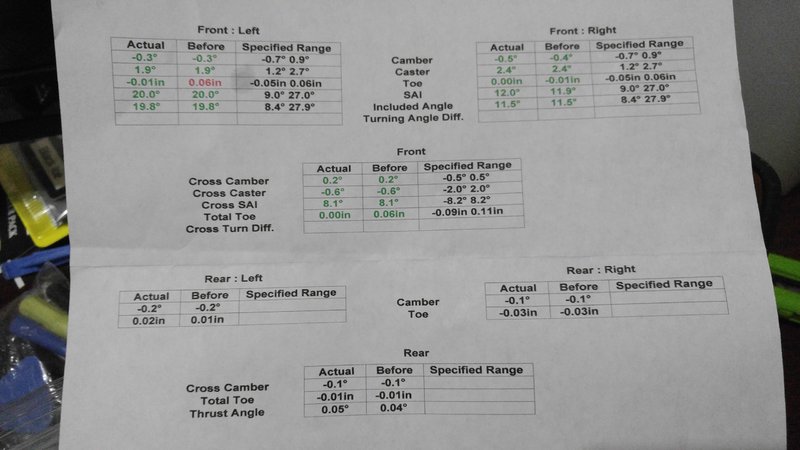 Front : Left
Actual Before Specified Range
-0.3° -0.3° -0.7° 0.9°
1.9° 1.9° 1.2° 2.7°
-0.01in 0.06in -0.05in 0.06in
20.0° 20.0° 9.0° 27.0°
19.8° 19.8° 8.4° 27.9°
Camber
Caster
Toe
SAI
Included Angle
Turning Angle Diff.
Front : Right
Actual Before Specified Range
-0.5° -0.4° -0.7° 0.9°
2.4° 2.4° 1.2° 2.7°
0.00in -0.01in -0.05in 0.06in
12.0° 11.9° 9.0° 27.0°
11.5° 11.5° 8.4° 27.9°
Front
Actual Before Specified Range
Cross Camber 0.2° 0.2° -0.5° 0.5°
Cross Caster -0.6° -0.6° -2.0° 2.0°
Cross SAI 8.1° 8.1° -8.2° 8.2°
Total Toe 0.00in 0.06in -0.09in 0.11in
Cross Turn Diff.
Rear : Left
Actual Before Specified Range
-0.2° -0.2°
0.02in 0.01in
Camber
Toe
Rear : Right
Actual Before Specified Range
-0.1° -0.1°
-0.03in -0.03in
Rear
Actual Before Specified Range
Cross Camber -0.1° -0.1°
Total Toe -0.01in -0.01in
Thrust Angle 0.05° 0.04°